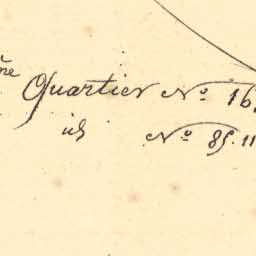 ñe Quartier No. 16.
id No. 85. 11